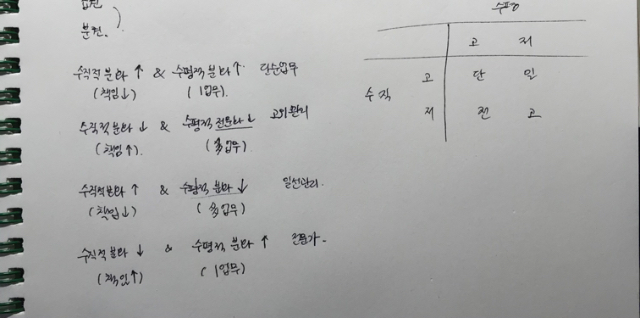 분권.
수직적 분화 ↑ & 수평적 분화 ↑ 단순업무
(책임↓) (1업무).
수직적 분화 ↓ & 수평적 전문화 ↓ 고위관리
(책임↑). (多업무)
수직적분화 ↑ & 수평적 분화 ↓ 일선관리.
(책임↓) (多업무)
수직적 분화 ↓ & 수평적 분화 ↑ 전문가.
(책임↑) (1업무)
수평
고 저
수직 고 단 일
저 전 고